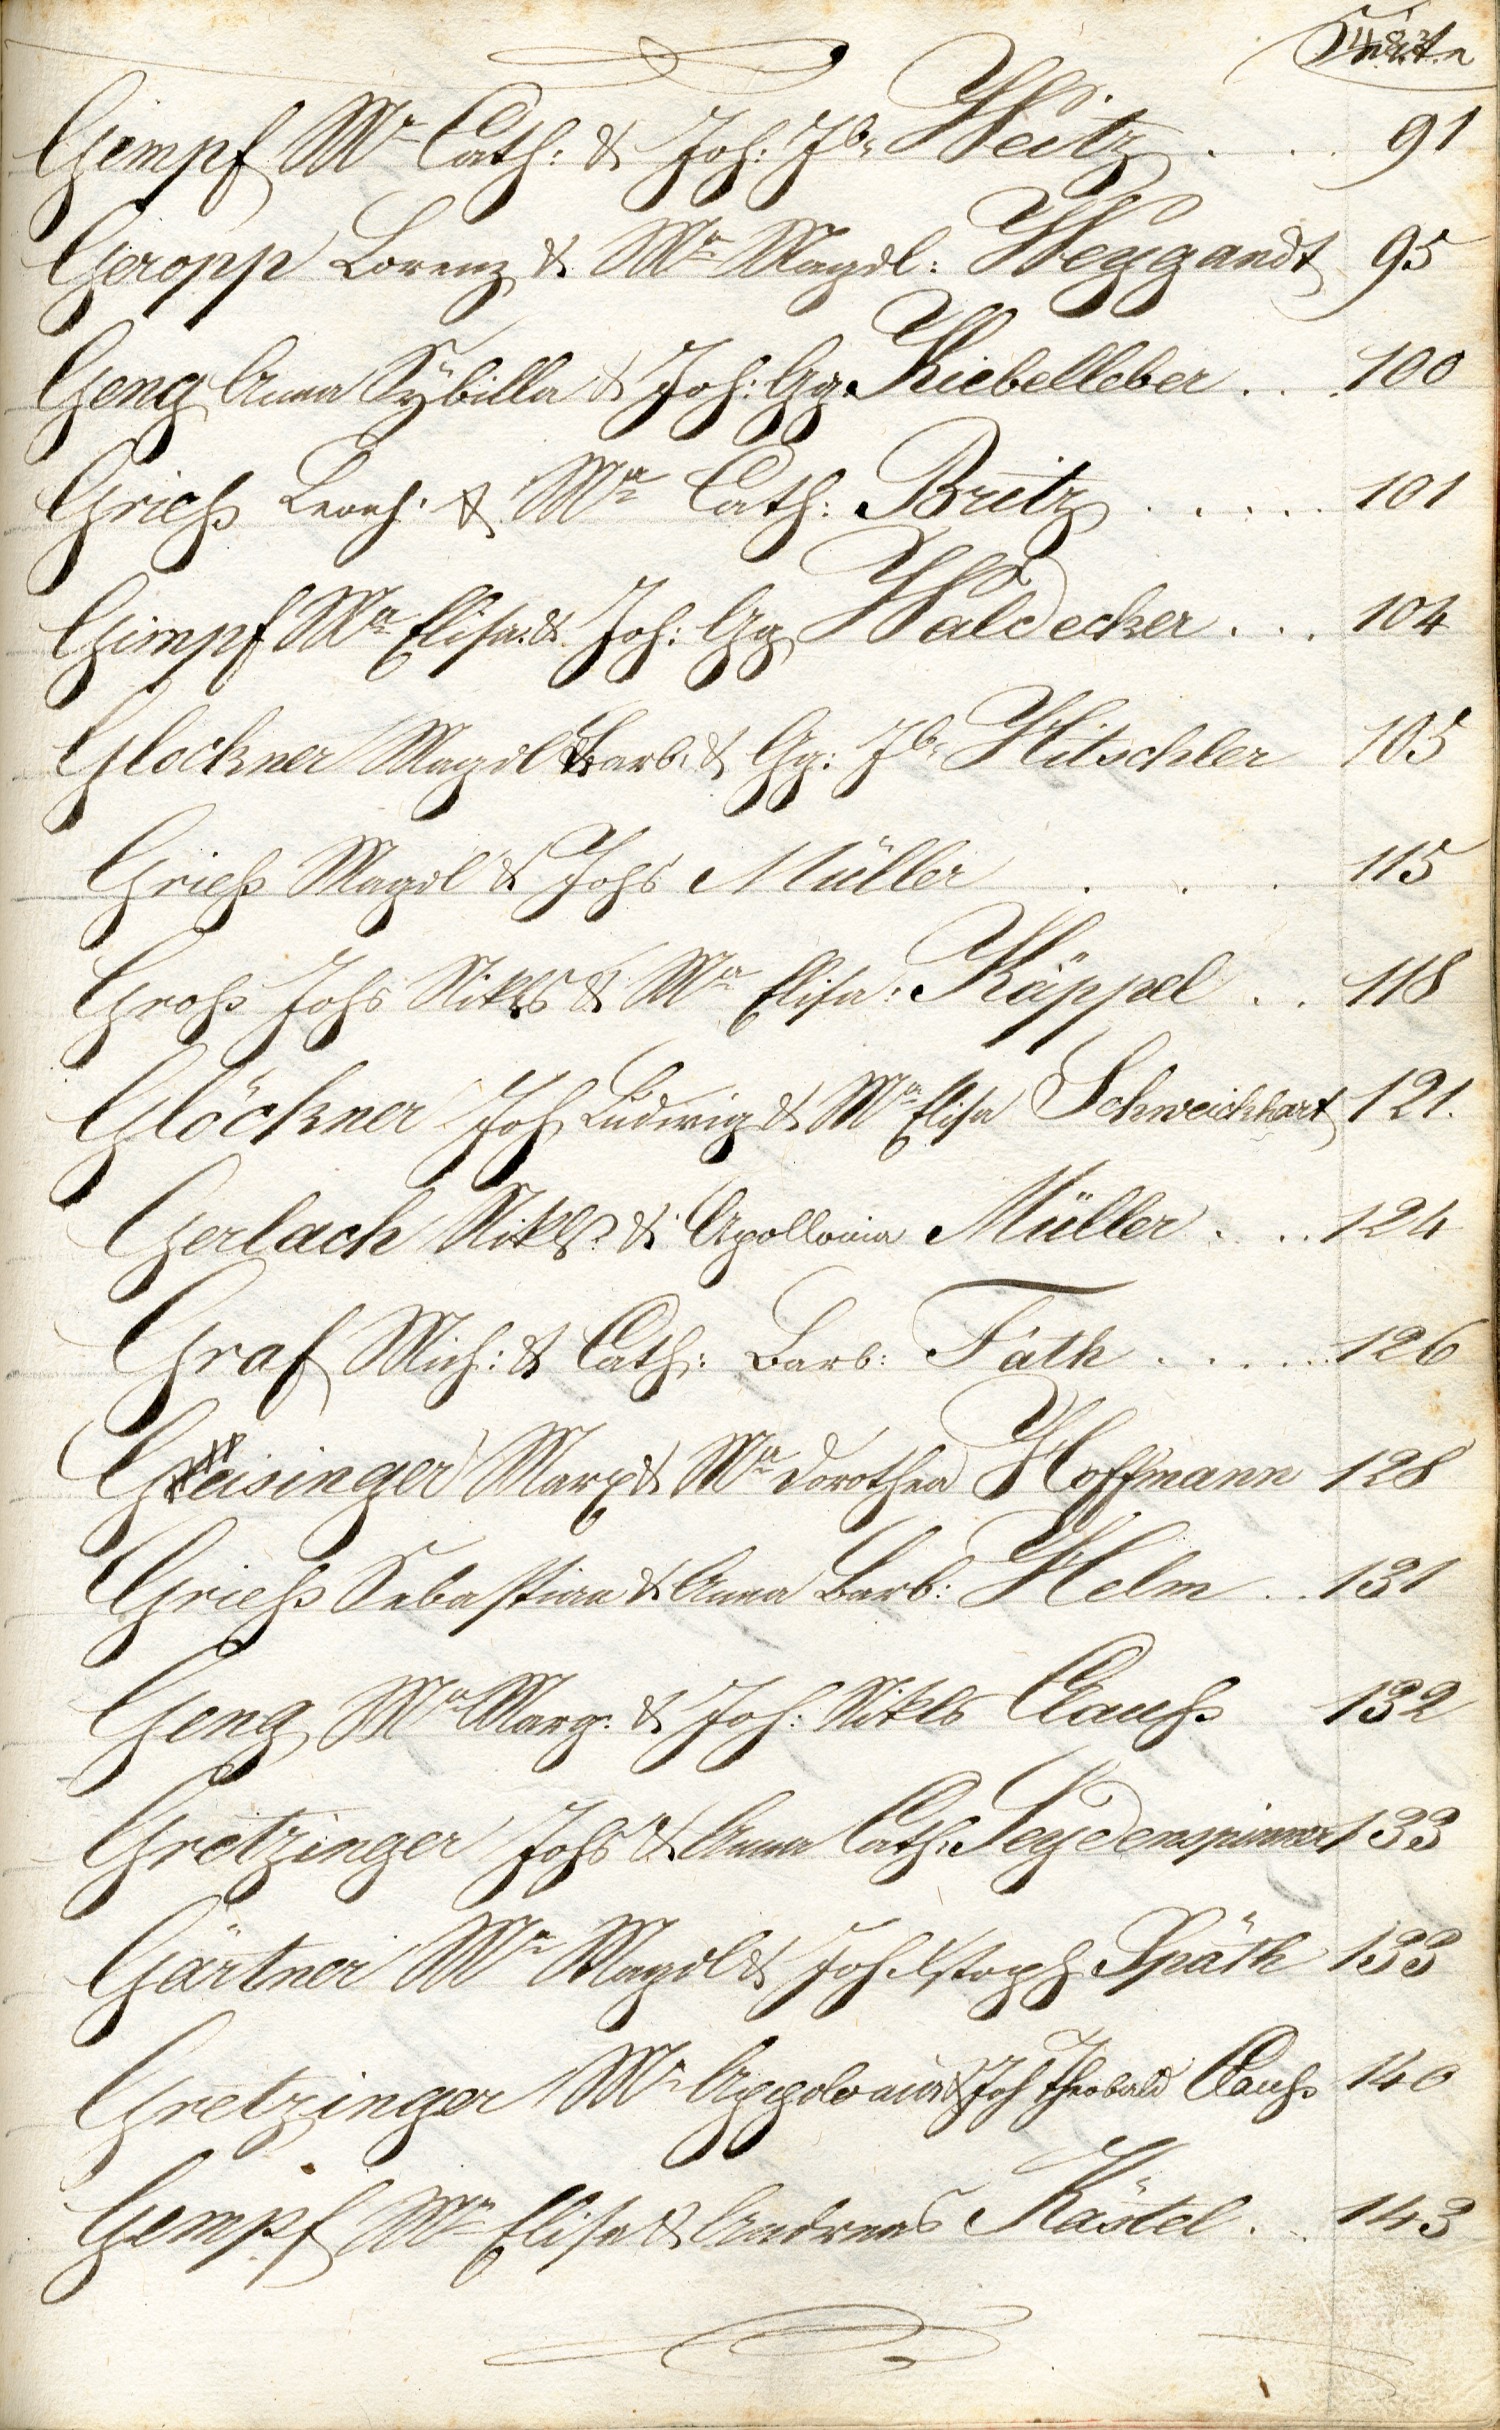 Gempf Mᵃ Cath: & Joh: Jb. Weitz . . . 91
Geropp Lorenz & Mᵃ Magdl: Weygandt 95
Geng Anna Sÿbilla & Joh: Gg. Kiebelleber . . . 100
Grieß Leonh: & Mᵃ Cath: Britz . . . . . 101
Gimpf Mᵃ Elisa: & Joh: Gg Waldecker . . . 104
Glockner Magdl Barb. & Gg: Jb. Hitschler 105
Grieß Magdl & Johs Müller . . . 115
Groß Johs Nikls & Mᵃ Elisa: Käppel . . 118
Glöckner Joh Ludwig & Mᵃ Elisa Schweickhart 121.
Gerlach Nikls & Apollonia Müller . . . 124
Graf Mich: & Cath: Barb: Fath . . . . . 126
Geisinger Marx & Mᵃ Dorothea Hoffmann 128
Grieß Sebastian & Anna Barb: Helm . . . 131
Geng Mᵃ Marg: & Joh: Nikls Clauß 132
Gretzinger Johs & Anna Cath: Seydenspinner 133
Gärtner Mᵃ Magdl & Joh Späth 133
Gretzinger Mᵃ Appolonia & Joh Theobald Clauß 140
Gempf Mᵃ Elisa & Andreas Kästel . . 143